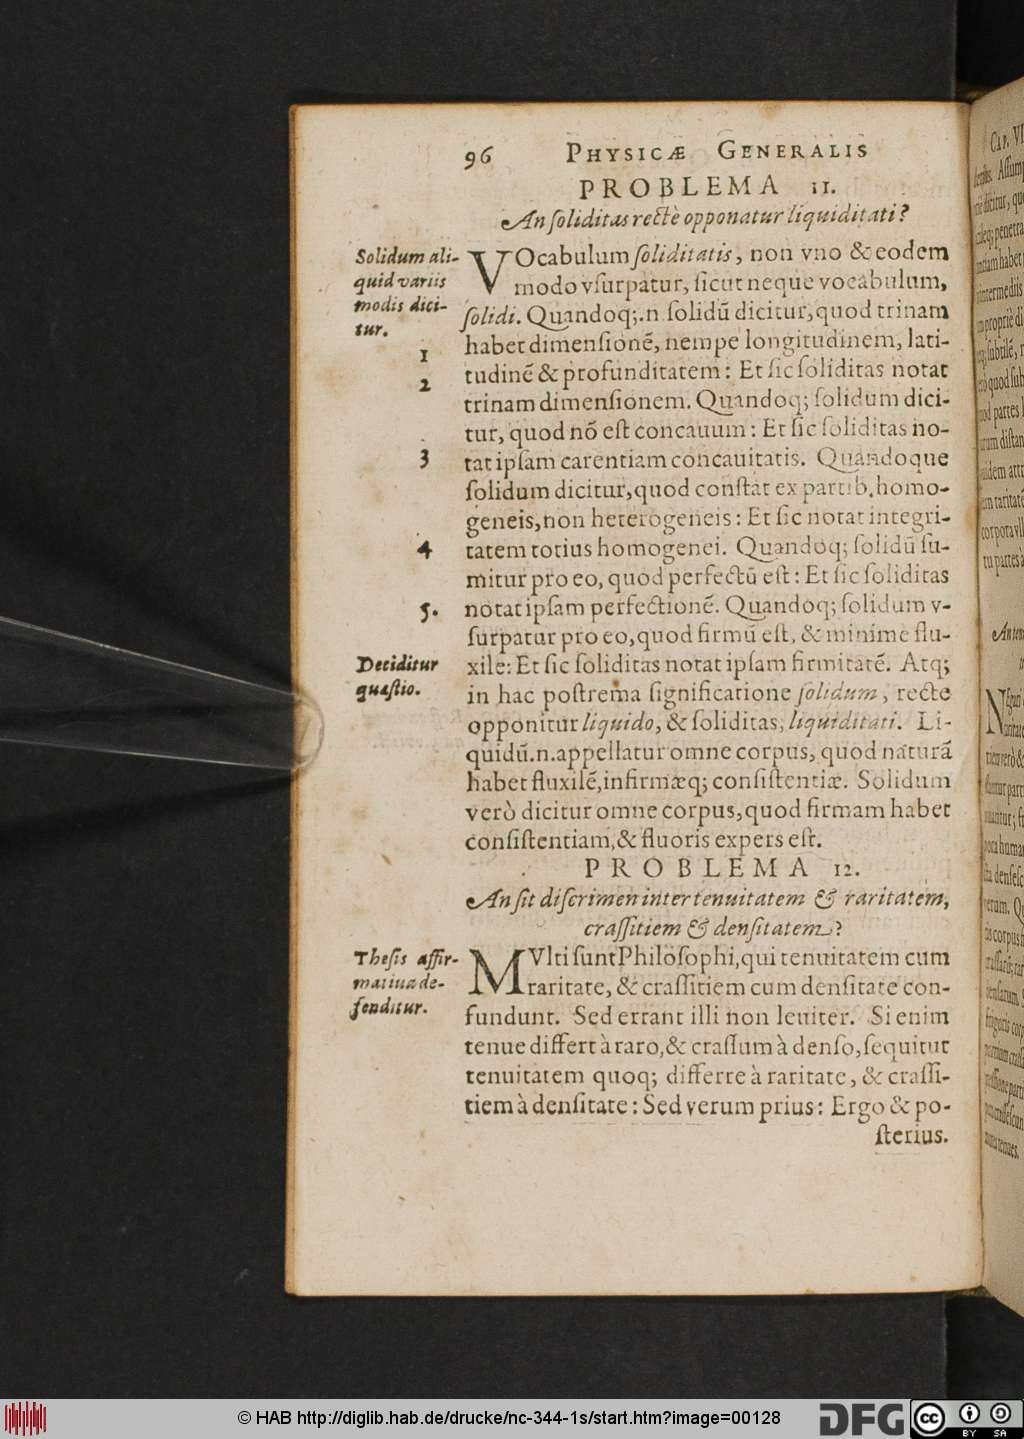 96 PHYSICÆ GENERALIS
PROBLEMA 11.
An ſoliditas rectè opponatur liquiditati?
Solidum ali-
quid variis
modis dici-
tur.
1
2
3
4
5.
Deciditur
quæſtio.
VOcabulum ſoliditatis, non vno & eodem
modo vſurpatur, ſicut neque vocabulum,
ſolidi. Quandoq;.n ſolidū dicitur, quod trinam
habet dimenſionē, nempe longitudinem, lati-
tudinē & profunditatem: Et ſic ſoliditas notat
trinam dimenſionem. Quandoq; ſolidum dici-
tur, quod nō eſt concauum: Et ſic ſoliditas no-
tat ipſam carentiam concauitatis. Quandoque
ſolidum dicitur, quod conſtat ex partib. homo-
geneis, non heterogeneis: Et ſic notat integri-
tatem totius homogenei. Quandoq; ſolidū ſu-
mitur pro eo, quod perfectū eſt: Et ſic ſoliditas
notat ipſam perfectionē. Quandoq; ſolidum v-
ſurpatur pro eo, quod firmū eſt, & minime flu-
xile: Et ſic ſoliditas notat ipſam firmitatē. Atq;
in hac poſtrema ſignificatione ſolidum, recte
opponitur liquido, & ſoliditas, liquiditati. Li-
quidū.n. appellatur omne corpus, quod naturā
habet fluxilē, infirmæq; conſiſtentiæ. Solidum
verò dicitur omne corpus, quod firmam habet
conſiſtentiam, & fluoris expers eſt.
PROBLEMA 12.
An ſit diſcrimen inter tenuitatem & raritatem,
craſſitiem & denſitatem?
Theſis affir-
matiua de-
fenditur.
MVlti ſunt Philoſophi, qui tenuitatem cum
raritate, & craſſitiem cum denſitate con-
fundunt. Sed errant illi non leuiter. Si enim
tenue differt à raro, & craſſum à denſo, ſequitur
tenuitatem quoq; differre à raritate, & craſſi-
tiem à denſitate: Sed verum prius: Ergo & po-
ſterius.
© HAB http://diglib.hab.de/drucke/nc-344-1s/start.htm?image=00128
DFG
cc
BY SA